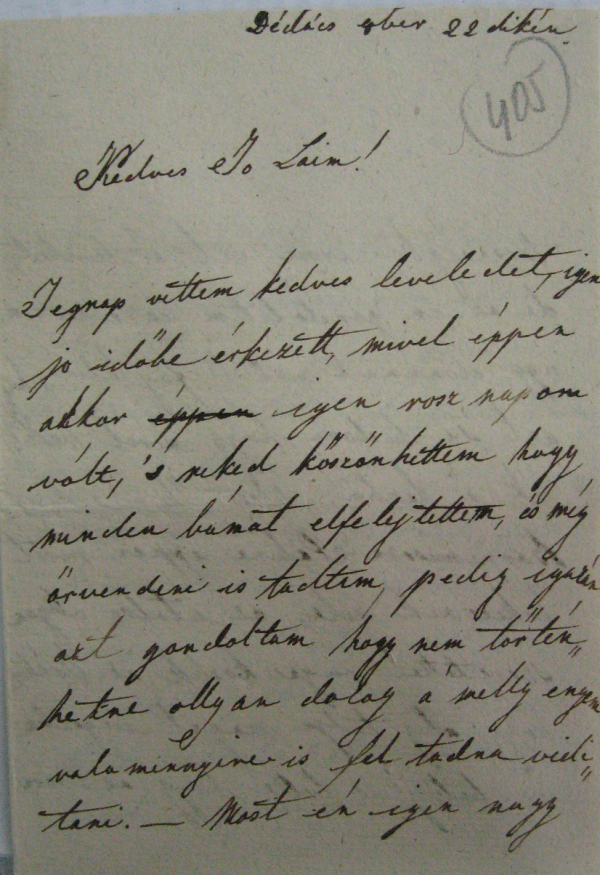 Dédács 8ber 22dikén.
405
Kedves Jo Laim!
Tegnap vettem kedves leveledet, igen
jo időbe érkezett, mivel éppen
akkor éppen igen rosz napom
vólt, 's neked köszönhettem hogy
minden búmat elfelejtettem, és még
örvendeni is tudtam, pedig igazán
azt gondoltam hogy nem történ„
hetne ollyan dolog a' melly engem
valamennyire is fel tudna vidi„
tani. — Most én igen nagy